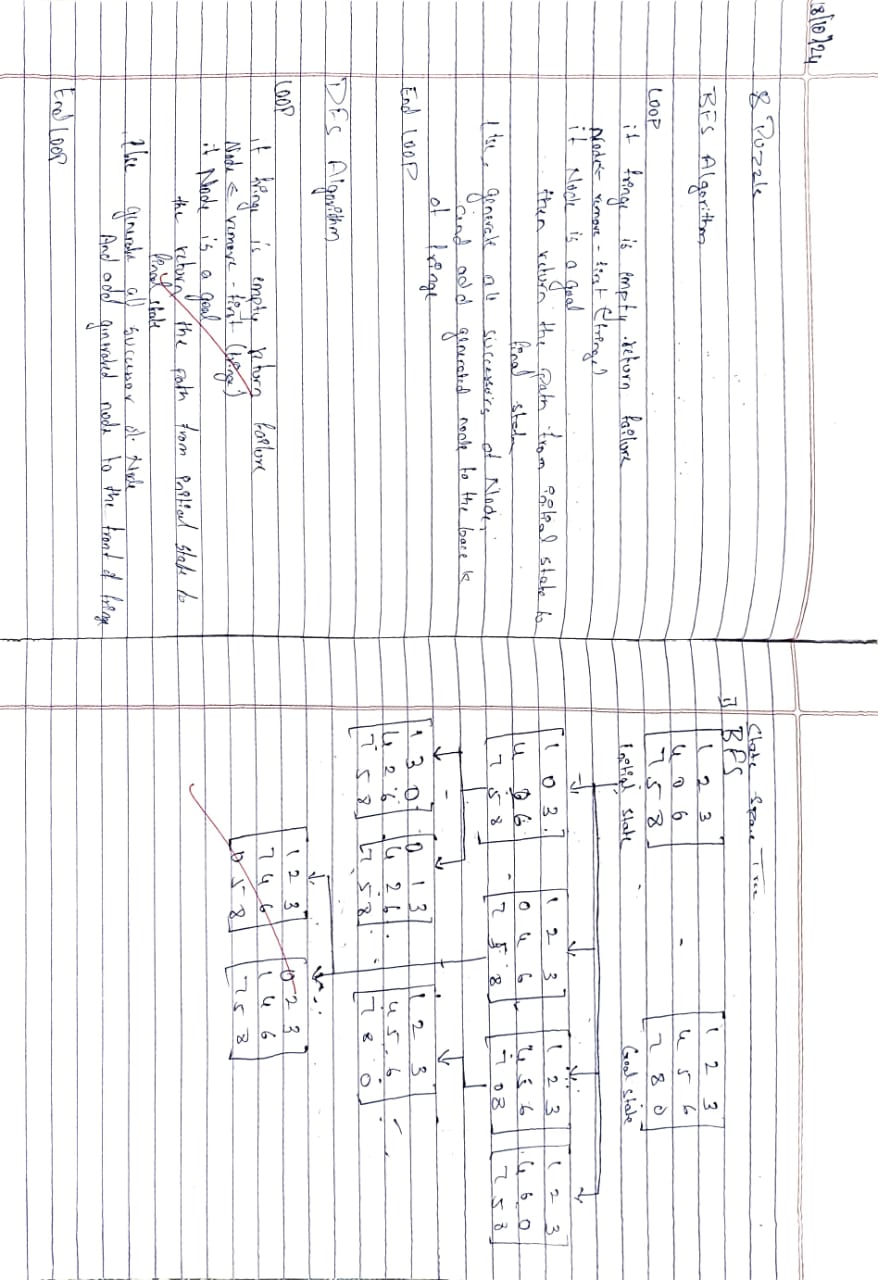 18/10/24
8 Puzzle
BFS Algorithm
LOOP
if fringe is empty return failure
Node ← remove - first (fringe)
if Node is a goal
then return the path from initial state to
final state
Else, generate all successors of Node,
and add generated node to the back
of fringe
End LOOP
DFS Algorithm
LOOP
if fringe is empty return failure
Node ← remove - first (fringe)
if Node is a goal
the return the path from initial state to
final state
Else generate all successor of Node
And add generated node to the front of fringe
End LOOP
State Space Tree
1] BFS
1 2 3
4 0 6
7 5 8
Initial state
1 2 3
4 5 6
7 8 0
Goal state
1 0 3
4 2 6
7 5 8
1 2 3
0 4 6
7 5 8
1 2 3
4 5 6
7 0 8
1 2 3
4 6 0
7 5 8
1 3 0
4 2 6
7 5 8
0 1 3
4 2 6
7 5 8
1 2 3
4 5 6
7 8 0
1 2 3
7 4 6
0 5 8
0 2 3
1 4 6
7 5 8